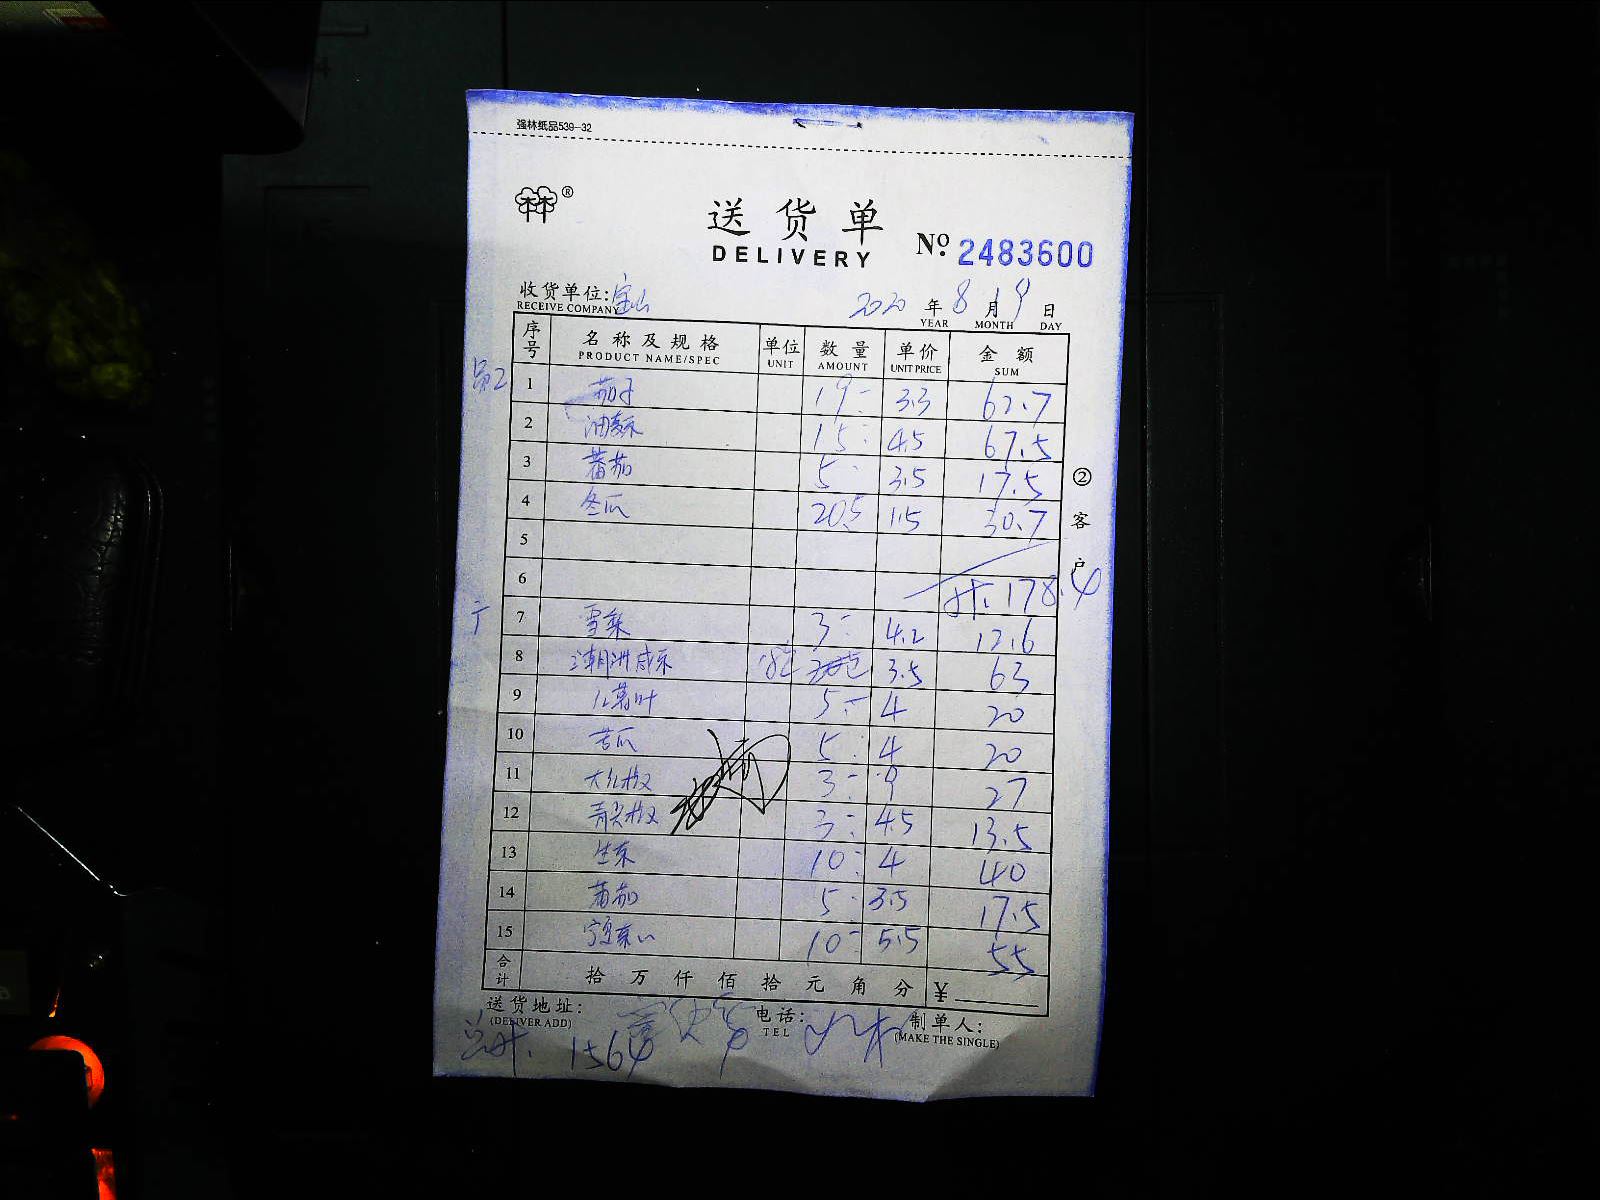 强林纸品539-32
林®
送货单
DELIVERY
No. 2483600
收货单位: 宝山 2020 年 8 月 19 日
RECEIVE COMPANY YEAR MONTH DAY
序号 名称及规格 单位 数量 单价 金额
PRODUCT NAME/SPEC UNIT AMOUNT UNIT PRICE SUM
员工 1 茄子 19- 3.3 62.7
2 油麦菜 15- 4.5 67.5
3 蕃茄 5- 3.5 17.5
4 冬瓜 20.5 1.5 30.7
5
6 计: 178.4
7 雪梨 3- 4.2 12.6
8 潮洲咸菜 18包 3.5 63
9 叶 5- 4 20
10 苦瓜 5- 4 20
11 大红椒 3- 9 27
12 青尖椒 3- 4.5 13.5
13 生菜 10- 4 40
14 蕃茄 5- 3.5 17.5
15 10- 5.5 55
合计 拾 万 仟 佰 拾 元 角 分 ¥
送货地址: 电话: 制单人:
(DELIVER ADD) TEL (MAKE THE SINGLE)
总计: 1564
②客户